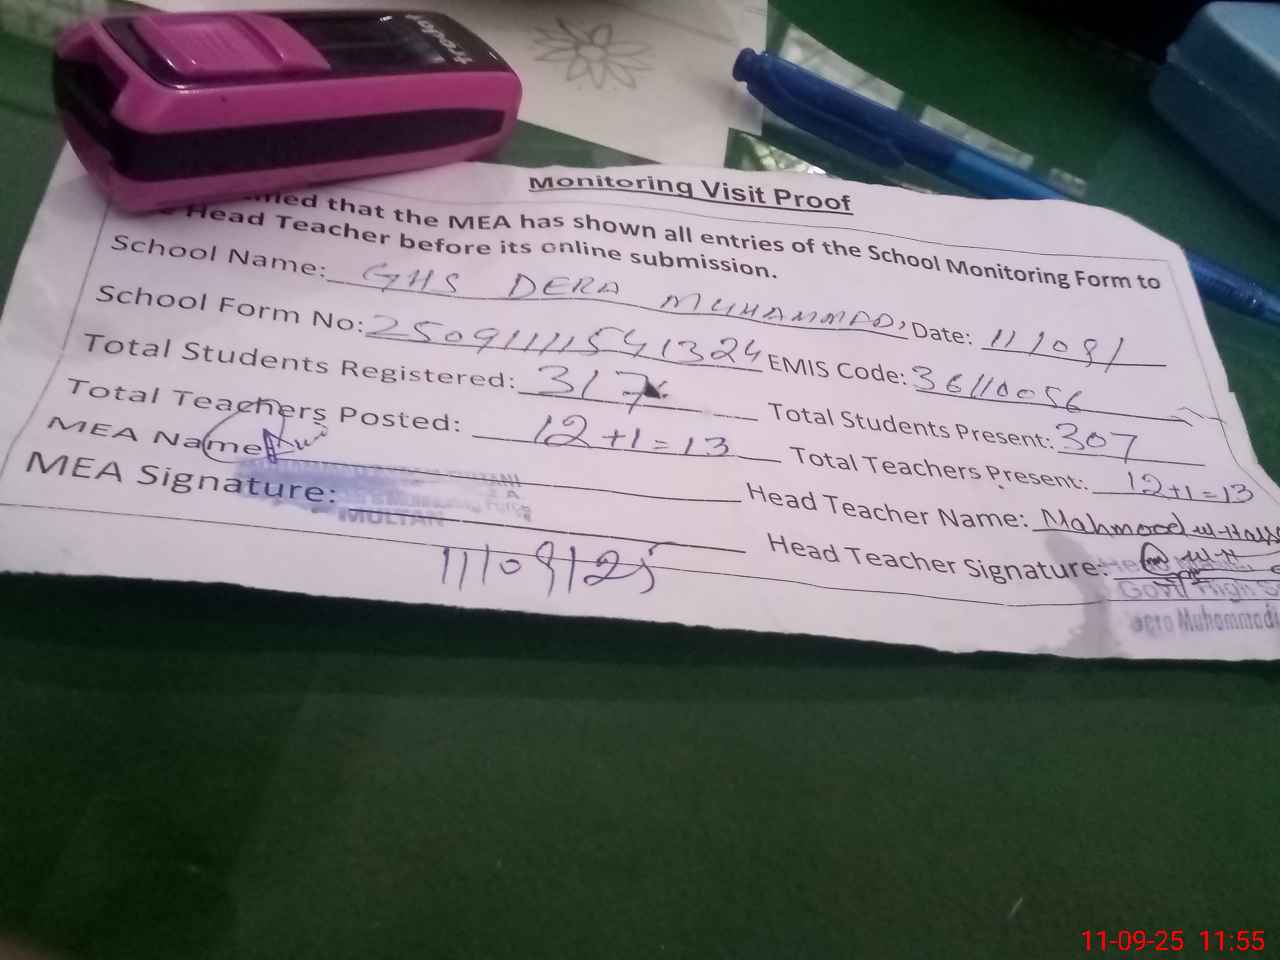 trodat
Monitoring Visit Proof
that the MEA has shown all entries of the School Monitoring Form to
Head Teacher before its online submission.
School Name: GHS DERA MUHAMMAD, Date: 11/09/
School Form No: 2509111115541324 EMIS Code: 36110056
Total Students Registered: 317 Total Students Present: 307
Total Teachers Posted: 12+1=13 Total Teachers Present: 12+1=13
MEA Name: Head Teacher Name: Mahmood ul-
MEA Signature: Head Teacher Signature:
MULTAN
Govt High
Muhammadi
11/09/25
11-09-25 11:55